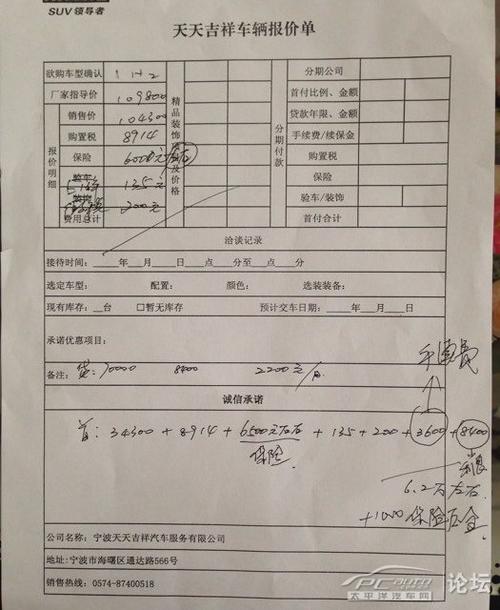 SUV 领导者
天天吉祥车辆报价单
欲购车型确认 1 H2
精品装饰及价格
分期付款
分期公司
厂家指导价 109800
首付比例、金额
报价明细
销售价 104300
贷款年限、金额
购置税 8914
手续费/续保金
保险 6000元左右
购置税
135元
保险
200元
验车/装饰
费用总计
首付合计
洽谈记录
接待时间:____年__月__日__点__分至__点__分
选定车型: 配置: 颜色: 选装装备:
现有库存:__台 □暂无库存 预计交车日期:____年__月__日
承诺优惠项目:
手续费
备注: 贷: 70000 8400 2200元/月
诚信承诺
首: 34300 + 8914 + 6500元左右 + 135 + 200 + 3600 + 8400
保险
6.2万左右
+1000 保险押金
公司名称:宁波天天吉祥汽车服务有限公司
地址:宁波市海曙区通达路566号
销售热线:0574-87400518
PCauto 论坛
太平洋汽车网